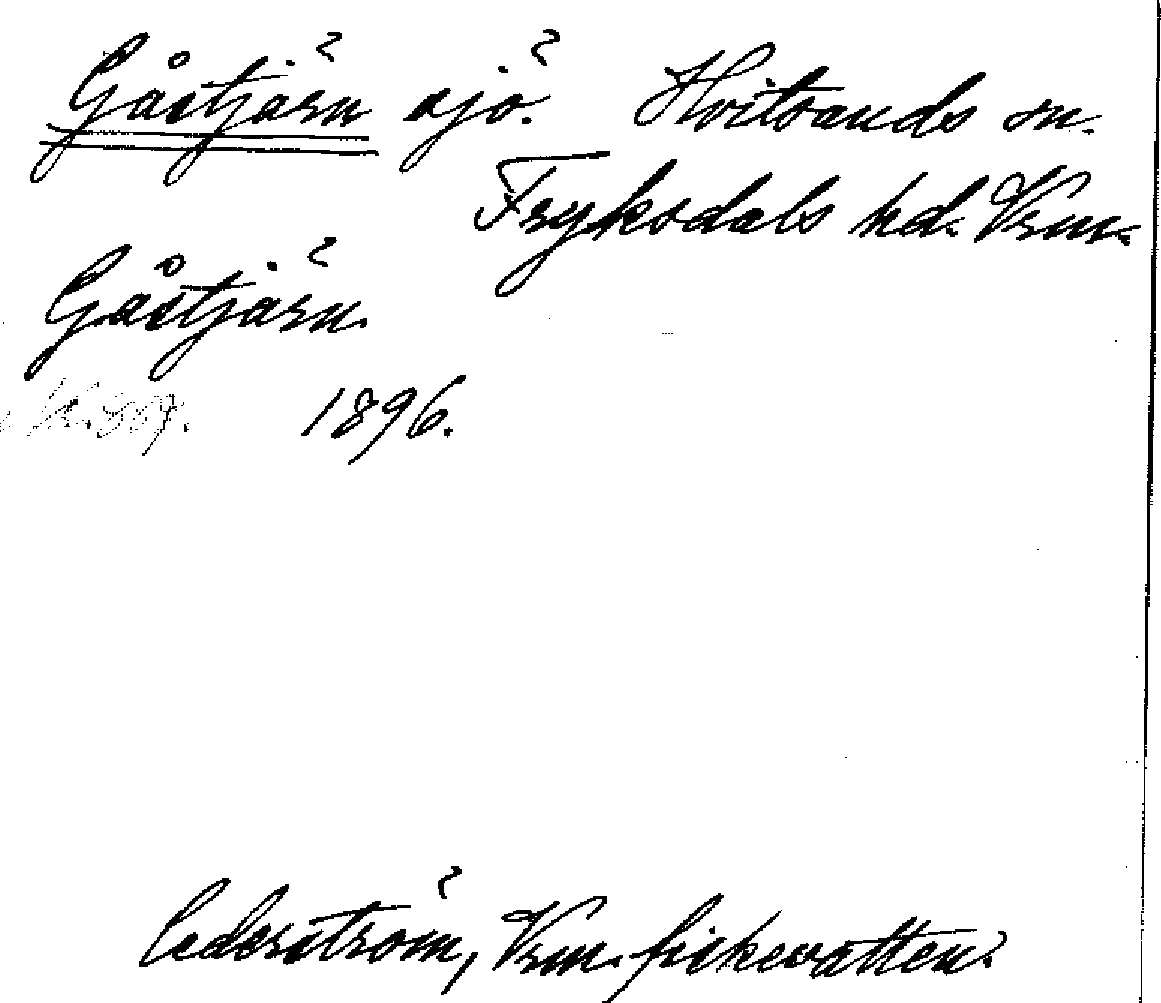 Gåstjärn sjö. Hvitsands sn.
Fryksdals hd. Vrm.
Gåstjärn.
1896.
Cederström, Vrm. fiskevatten.